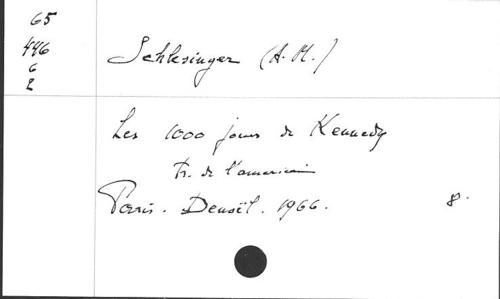 65
446
6
2
Schlesinger (A. M.)
Les 1000 jours de Kennedy
Tr. de l'americain
Paris. Denoël. 1966. 8.